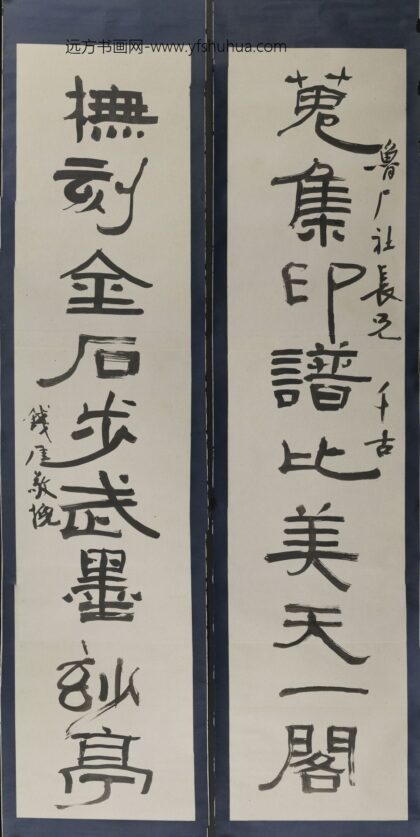 远方书画网-www.yfshuhua.com
魯厂社長兄 千古
蒐集印譜比美天一閣
橅刻金石步武墨玅亭
錢厓敬挽